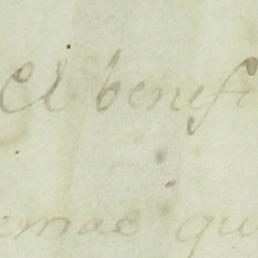 El benef
emas qu